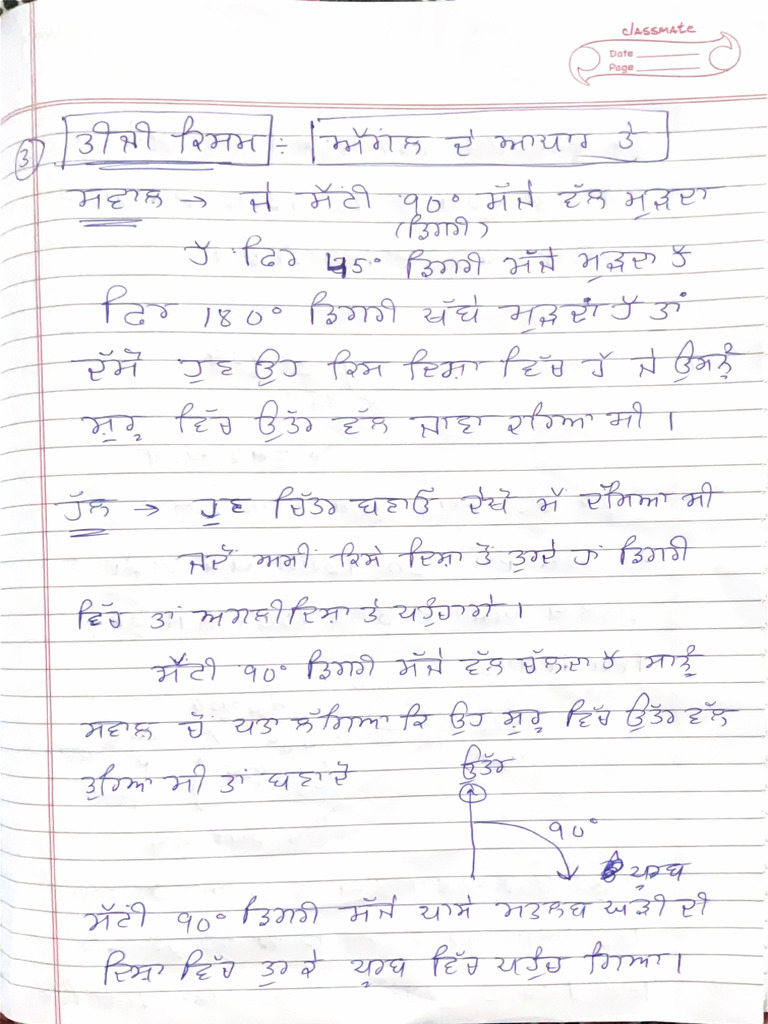 classmate
Date
Page
③ ਤੀਜੀ ਕਿਸਮ ÷ ਐਂਗਲ ਦੇ ਆਧਾਰ ਤੇ
ਸਵਾਲ → ਜੇ ਮੋਂਟੀ 90° ਸੱਜੇ ਵੱਲ ਮੁੜਦਾ
(ਡਿਗਰੀ)
ਹੈ ਫਿਰ 45° ਡਿਗਰੀ ਸੱਜੇ ਮੁੜਦਾ ਹੈ
ਫਿਰ 180° ਡਿਗਰੀ ਖੱਬੇ ਮੁੜਦਾ ਹੈ ਤਾਂ
ਦੱਸੋ ਹੁਣ ਉਹ ਕਿਸ ਦਿਸ਼ਾ ਵਿੱਚ ਹੈ ਜੇ ਉਸਨੂੰ
ਸ਼ੁਰੂ ਵਿੱਚ ਉੱਤਰ ਵੱਲ ਜਾਣਾ ਸੀ ।
ਹੱਲ → ਹੁਣ ਚਿੱਤਰ ਬਣਾਓ ਦੇਖੋ ਮੈਂ ਦੱਸਿਆ ਸੀ
ਜਦੋਂ ਅਸੀਂ ਕਿਸੇ ਦਿਸ਼ਾ ਤੋਂ ਤੁਰਦੇ ਹਾਂ ਡਿਗਰੀ
ਵਿੱਚ ਤਾਂ ਅਗਲੀ ਦਿਸ਼ਾ ਤੇ ਪਹੁੰਚਾਂਗੇ ।
ਮੋਂਟੀ 90° ਡਿਗਰੀ ਸੱਜੇ ਵੱਲ ਚੱਲਦਾ ਹੈ ਸਾਨੂੰ
ਸਵਾਲ ਚੋਂ ਪਤਾ ਲੱਗਿਆ ਕਿ ਉਹ ਸ਼ੁਰੂ ਵਿੱਚ ਉੱਤਰ ਵੱਲ
ਤੁਰਿਆ ਸੀ ਤਾਂ ਬਣਾਦੋ
ਉੱਤਰ
90°
ਪੂਰਬ
ਮੋਂਟੀ 90° ਡਿਗਰੀ ਸੱਜੇ ਪਾਸੇ ਮਤਲਬ ਘੜੀ ਦੀ
ਦਿਸ਼ਾ ਵਿੱਚ ਤੁਰ ਕੇ ਪੂਰਬ ਵਿੱਚ ਪਹੁੰਚ ਗਿਆ ।